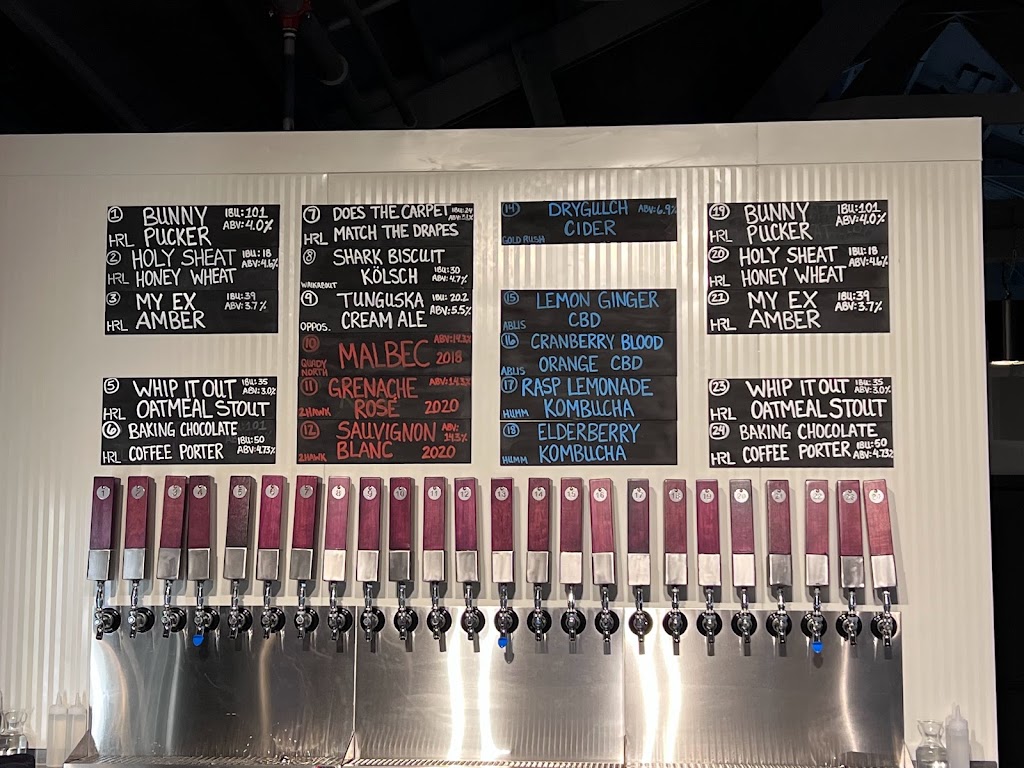 1 BUNNY IBU:101
HRL PUCKER ABV:4.0%
2 HOLY SHEAT IBU:18
HRL HONEY WHEAT ABV:4.6%
3 MY EX IBU:39
HRL AMBER ABV:3.7%
5 WHIP IT OUT IBU:35
ABV:3.0%
HRL OATMEAL STOUT
6 BAKING CHOCOLATE
HRL COFFEE PORTER IBU:50
ABV:4.73%
7 DOES THE CARPET IBU:24
HRL MATCH THE DRAPES
8 SHARK BISCUIT
KÖLSCH IBU:30
WALKABOUT ABV:4.7%
9 TUNGUSKA IBU:20.2
OPPOS. CREAM ALE ABV:5.5%
10 MALBEC 2018
QUADY NORTH
11 GRENACHE ABV:14.3%
2HAWK ROSÉ 2020
12 SAUVIGNON ABV:
14.3%
2HAWK BLANC 2020
14 DRYGULCH ABV:6.9%
CIDER
GOLD RUSH
15 LEMON GINGER
ABLIS CBD
16 CRANBERRY BLOOD
ABLIS ORANGE CBD
17 RASP LEMONADE
HUMM KOMBUCHA
18 ELDERBERRY
HUMM KOMBUCHA
19 BUNNY IBU:101
HRL PUCKER ABV:4.0%
20 HOLY SHEAT IBU:18
HRL HONEY WHEAT ABV:4.6%
21 MY EX IBU:39
HRL AMBER ABV:3.7%
23 WHIP IT OUT IBU:35
ABV:3.0%
HRL OATMEAL STOUT
24 BAKING CHOCOLATE
HRL COFFEE PORTER IBU:50
ABV:4.73%